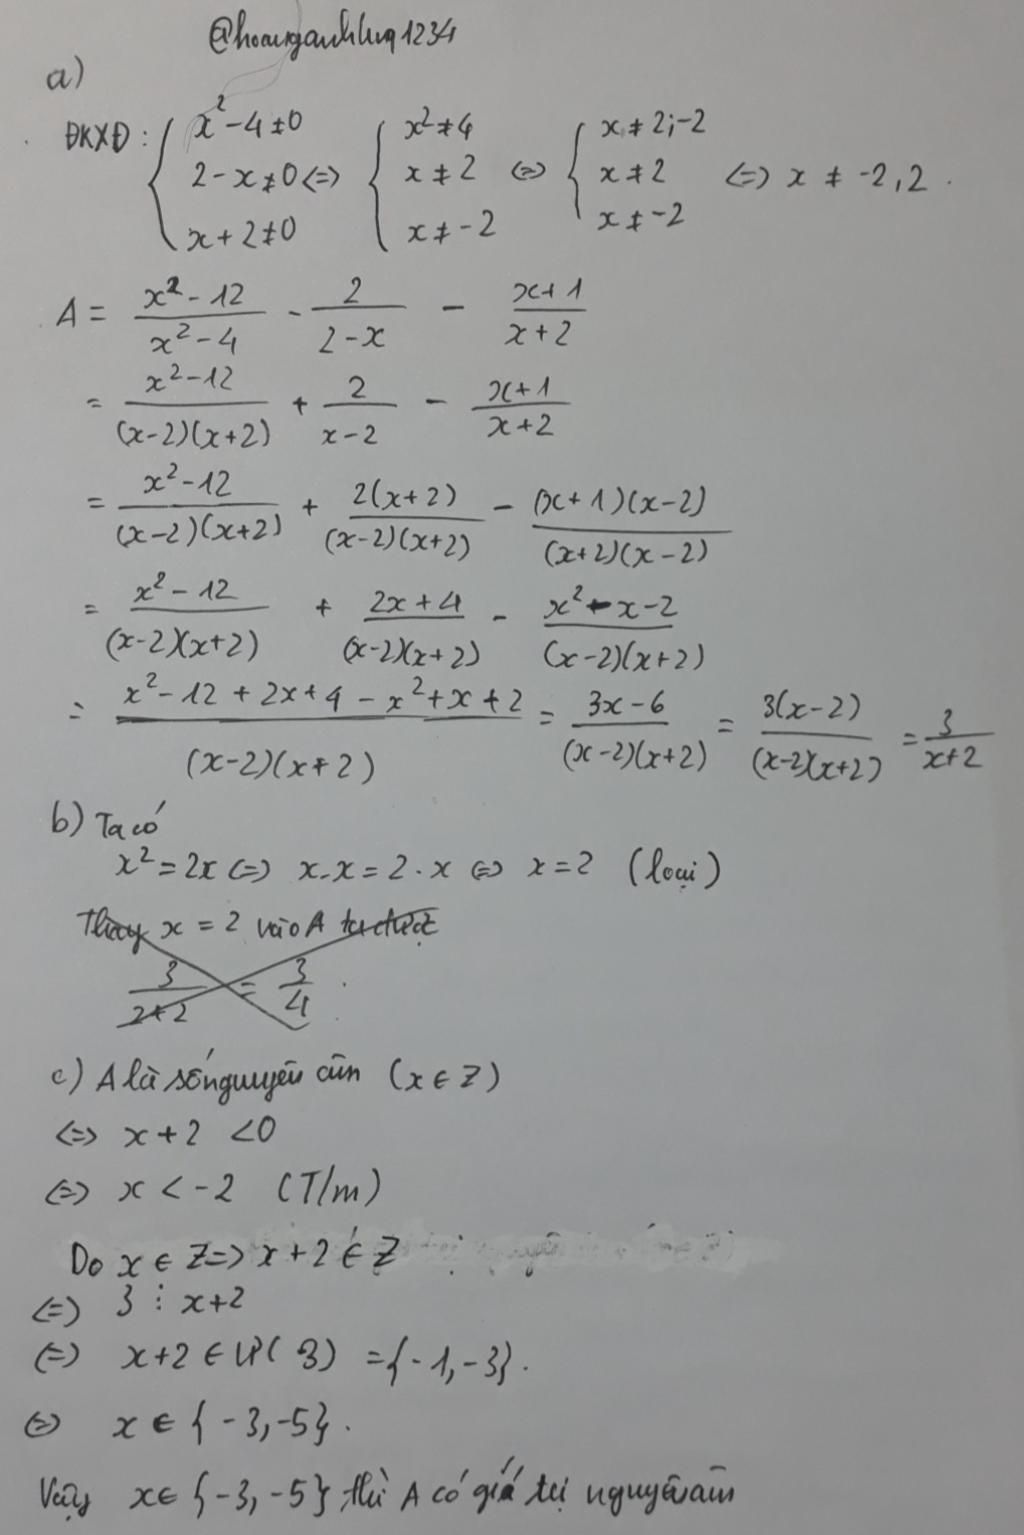 @hoanganhhuq1234
a)
ĐKXĐ: { x²-4≠0 2-x≠0 x+2≠0 <=> { x²≠4 x≠2 x≠-2 <=> { x≠2;-2 x≠2 x≠-2 <=> x≠-2,2.
A = (x²-12)/(x²-4) - 2/(2-x) - (x+1)/(x+2)
= (x²-12)/((x-2)(x+2)) + 2/(x-2) - (x+1)/(x+2)
= (x²-12)/((x-2)(x+2)) + 2(x+2)/((x-2)(x+2)) - (x+1)(x-2)/((x+2)(x-2))
= (x²-12)/((x-2)(x+2)) + (2x+4)/((x-2)(x+2)) - (x²-x-2)/((x-2)(x+2))
= (x²-12+2x+4-x²+x+2)/((x-2)(x+2)) = (3x-6)/((x-2)(x+2)) = 3(x-2)/((x-2)(x+2)) = 3/(x+2)
b) Ta có
x²=2x <=> x.x=2.x <=> x=2 (loại)
Thay x=2 vào A ta được
3/(2+2) = 3/4.
c) A là số nguyên âm (x∈Z)
<=> x+2 <0
<=> x<-2 (T/m)
Do x∈Z => x+2∈Z
<=> 3⋮x+2
<=> x+2∈Ư(3) ={-1,-3}.
<=> x∈{-3,-5}.
Vậy x∈{-3,-5} thì A có giá trị nguyên âm